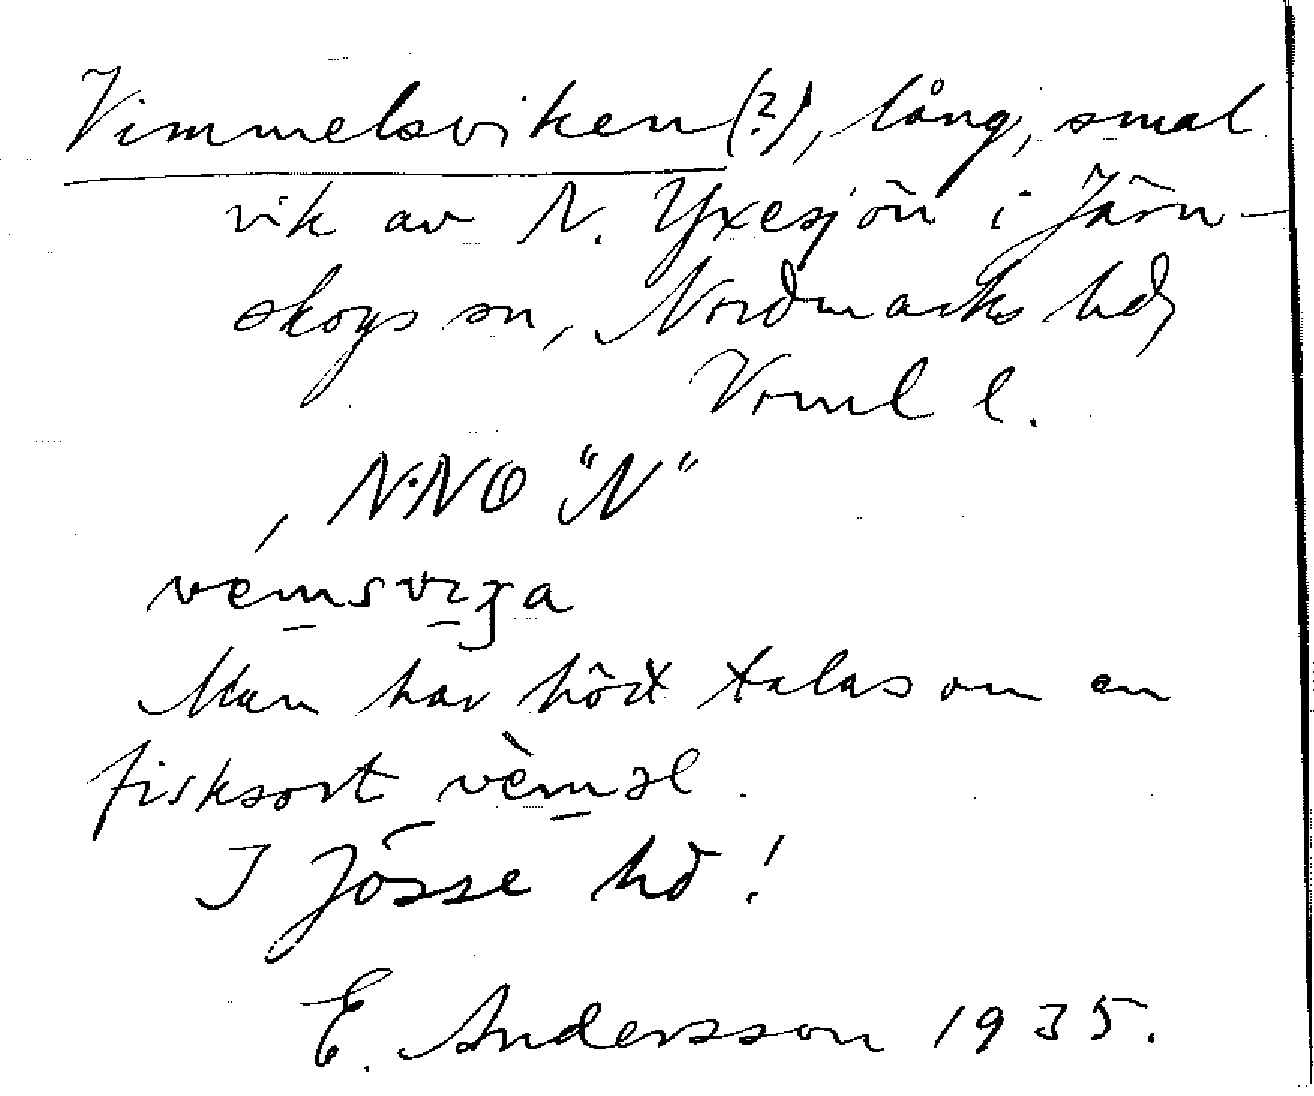 Vimmelsviken(?), lång, smal
vik av N. Yxesjön i Järn-
skogs sn, Nordmarks hd,
Vrml l.
, N·NO "N"
vemsvıga
Man har hört talas om en
fisksort vèməl.
I Jösse hd!
E. Andersson 1935.